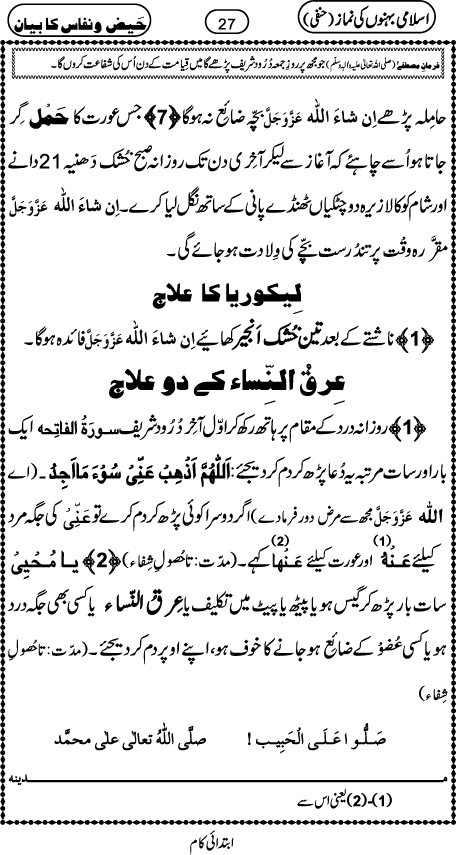 اسلامی بہنوں کی نماز (حنفی) 27 حیض و نفاس کا بیان
فرمانِ مصطفےٰ (صلی اللہ تعالیٰ علیہ والہ وسلم) جو مجھ پر روزِ جمعہ دُرُود شریف پڑھے گا میں قیامت کے دن اُس کی شفاعت کروں گا۔
حاملہ پڑھے اِن شاءَ اللہ عَزَّوَجَلَّ بچّہ ضائِع نہ ہوگا ﴿7﴾ جس عورت کا حَمْل گِر
جاتا ہو اُسے چاہئے کہ آغاز سے لیکر آخِری دن تک روزانہ صبح خُشک دَھنیہ 21 دانے
اور شام کو کالا زِیرہ دو چٹکیاں ٹھنڈے پانی کے ساتھ نگل لیا کرے۔ اِن شاءَ اللہ عَزَّوَجَلَّ
مقرَّرہ وقت پر تندُرست بچّے کی وِلادت ہوجائے گی۔
لِیکوریا کا علاج
﴿1﴾ ناشتے کے بعد تین خُشک اَنجیر کھائیے اِن شاءَ اللہ عَزَّوَجَلَّ فائدہ ہوگا۔
عِرقُ النِّساء کے دو علاج
﴿1﴾ روزانہ درد کے مقام پر ہاتھ رکھ کر اوّل آخِر دُرُود شریف سورۃُ الفاتِحہ ایک
بار اور سات مرتبہ یہ دُعا پڑھ کر دم کر دیجئے: اَللّٰھُمَّ اَذْھِبْ عَنِّیْ سُوْٓءَ مَا اَجِدُ۔ (اے
اللہ عَزَّوَجَلَّ مجھ سے مرض دور فرما دے) اگر دوسرا کوئی پڑھ کر دم کرے تو عَنِّیْ کی جگہ مرد
کیلئے عَنْہُ (1) اور عورت کیلئے عَنْھا (2) کہے۔ (مدّت: تا حُصولِ شِفاء) ﴿2﴾ یا مُحْیِیْ
سات بار پڑھ کر گیس ہو یا پیٹھ یا پیٹ میں تکلیف یا عِرقُ النِّساء یا کسی بھی جگہ درد
ہو یا کسی عُضْوْ کے ضائِع ہو جانے کا خوف ہو، اپنے اوپر دم کر دیجئے۔ (مدّت: تا حُصولِ
شِفاء)
صَلُّوا عَلَی الْحَبِیب ! صلَّی اللہُ تعالٰی علٰی محمَّد
مدینہ
(1)-(2) یعنی اس سے
ابتدائی کام